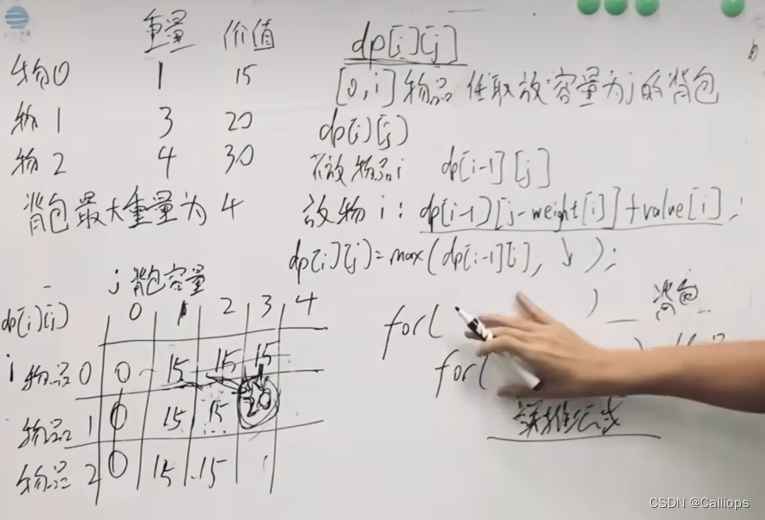 重量 价值
物品0 1 15
物1 3 20
物2 4 30
背包最大重量为4
dp[i][j]
[0,i]物品任取放容量为j的背包
dp[i][j]
不放物品i dp[i-1][j]
放物i:dp[i-1][j-weight[i]]+value[i];
dp[i][j]=max(dp[i-1][j], ↓ );
j 背包容量
dp[i][j] 0 1 2 3 4
i 物品0 0 15 15 15
物品1 0 15 15 20
物品2 0 15 15
for( ) 背包
for(
递推公式
CSDN @Calliops